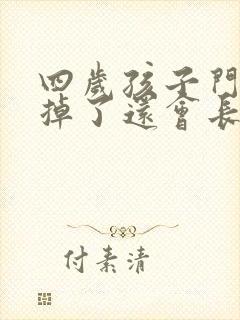 四歲孩子門
掉了還會長
付素清